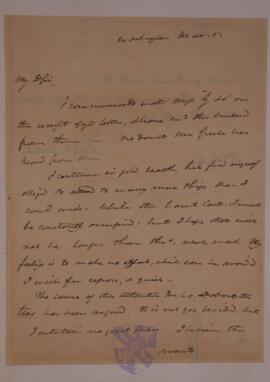 Washington Mar.
My D Sir,
I communicated with Mess
the receipt of yr letter, & have
from them — no doubt Mr Greele has
heard from them
I continue in good health, but find myself
obliged to attend to many more things than I
could wish. While the Court lasts, I must
be constantly occupied; but I hope that will
not be longer than this, next week. My
feeling is to make no effort, which can be avoided.
I wish for repose, & quiet.
The cause of the Atlantic Ins. Co. about the
teas has been argued. It is not yet decided, but
I entertain no great fears. I believe the
merits